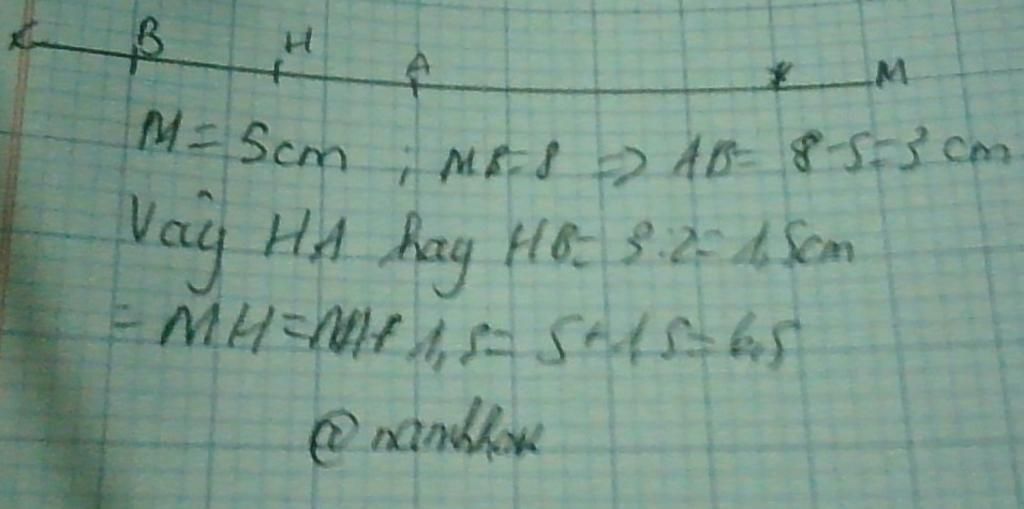 B H A M
M = 5cm ; MB=8 => AB= 8-5=3 cm
Vậy HA hay HB= 3:2= 1,5cm
= MH = 1,5= 5+1,5= 6,5